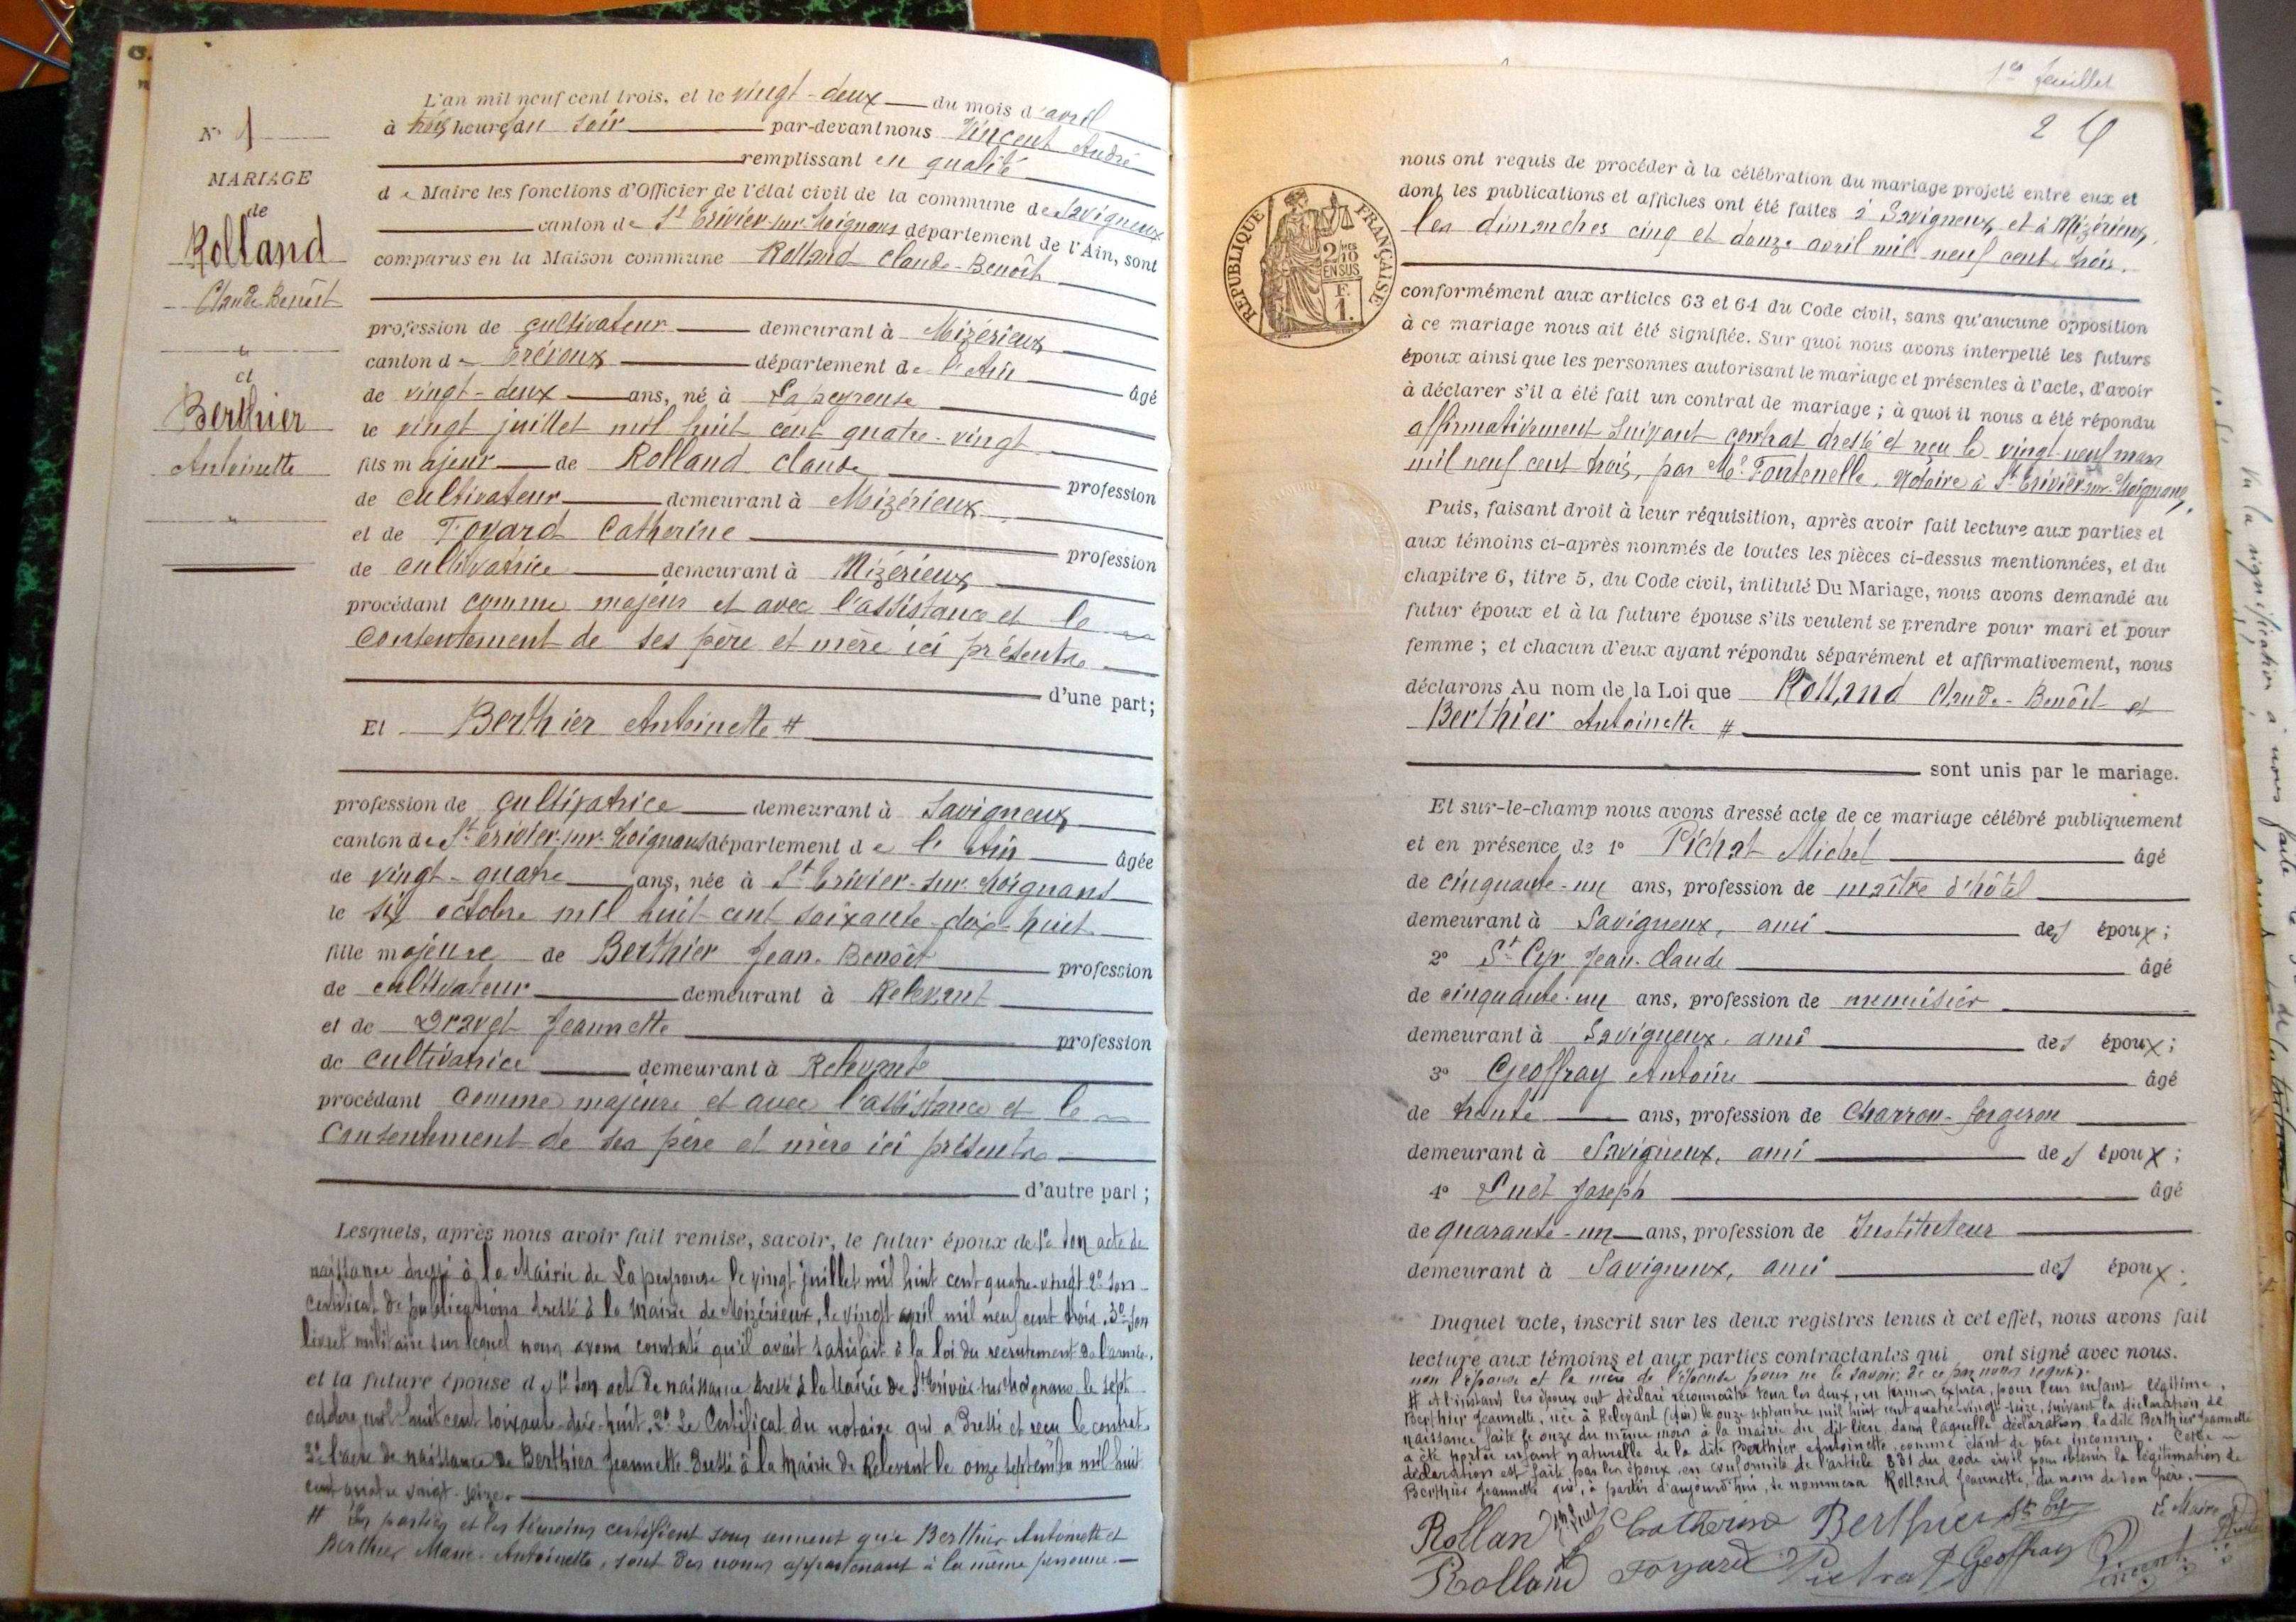 N° 1
MARIAGE
de
Rolland
Claude Benoît
et
Berthier
Antoinette
L'an mil neuf cent trois, et le vingt-deux du mois d'avril
à trois heures du soir par-devant nous Vincent André
remplissant en qualité
de Maire les fonctions d'Officier de l'état civil de la commune de Savigneux
canton de St Trivier-sur-Moignans département de l'Ain, sont
comparus en la Maison commune Rolland Claude-Benoît
profession de cultivateur demeurant à Mizérieux
canton de Trévoux département de l'Ain
âgé
de vingt-deux ans, né à Lapeyrouse
le vingt juillet mil huit cent quatre-vingt
fils majeur de Rolland Claude
profession
de cultivateur demeurant à Mizérieux
et de Foyard Catherine
profession
de cultivatrice demeurant à Mizérieux
procédant comme majeur et avec l'assistance et le
consentement de ses père et mère ici présents
d'une part;
Et Berthier Antoinette #
profession de cultivatrice demeurant à Savigneux
canton de St Trivier-sur-Moignans département de l'Ain
âgée
de vingt-quatre ans, née à St Trivier-sur-Moignans
le six octobre mil huit cent soixante-dix-huit
fille majeure de Berthier Jean-Benoît
profession
de cultivateur demeurant à Relevant
et de Dravet Jeannette
profession
de cultivatrice demeurant à Relevant
procédant comme majeure et avec l'assistance et le
consentement de ses père et mère ici présents
d'autre part;
Lesquels, après nous avoir fait remise, savoir, le futur époux de 1° son acte de
naissance dressé à la Mairie de Lapeyrouse le vingt juillet mil huit cent quatre-vingt 2° son
certificat de publications dressé à la mairie de Mizérieux, le vingt avril mil neuf cent trois. 3° son
livret militaire sur lequel nous avons constaté qu'il avait satisfait à la loi du recrutement de l'armée.
et la future épouse de 1° son acte de naissance dressé à la Mairie de St Trivier-sur-Moignans le sept
octobre mil huit cent soixante-dix-huit. 2° Le Certificat du notaire qui a dressé et reçu le contrat
3° l'acte de naissance de Berthier Jeannette dressé à la Mairie de Relevant le onze septembre mil huit
cent quatre vingt-seize.
# Les parties et les témoins certifient sous serment que Berthier Antoinette et
Berthier Marie-Antoinette, sont des noms appartenant à la même personne.
1er feuillet
2
RÉPUBLIQUE FRANÇAISE
2/10 EN SUS
F. 1.
nous ont requis de procéder à la célébration du mariage projeté entre eux et
dont les publications et affiches ont été faites à Savigneux, et à Mizérieux,
les dimanches cinq et douze avril mil neuf cent trois.
conformément aux articles 63 et 64 du Code civil, sans qu'aucune opposition
à ce mariage nous ait été signifiée. Sur quoi nous avons interpellé les futurs
époux ainsi que les personnes autorisant le mariage et présentes à l'acte, d'avoir
à déclarer s'il a été fait un contrat de mariage; à quoi il nous a été répondu
affirmativement suivant contrat dressé et reçu le vingt-neuf mars
mil neuf cent trois, par Me Fontenelle, Notaire à St Trivier-sur-Moignans,
Puis, faisant droit à leur réquisition, après avoir fait lecture aux parties et
aux témoins ci-après nommés de toutes les pièces ci-dessus mentionnées, et du
chapitre 6, titre 5, du Code civil, intitulé Du Mariage, nous avons demandé au
futur époux et à la future épouse s'ils veulent se prendre pour mari et pour
femme; et chacun d'eux ayant répondu séparément et affirmativement, nous
déclarons Au nom de la Loi que Rolland Claude-Benoît et
Berthier Antoinette #
sont unis par le mariage.
Et sur-le-champ nous avons dressé acte de ce mariage célébré publiquement
et en présence de 1° Pichat Michel âgé
de cinquante-un ans, profession de maître d'hôtel
demeurant à Savigneux, ami des époux;
2° St Cyr Jean-Claude âgé
de cinquante-un ans, profession de menuisier
demeurant à Savigneux, ami des époux;
3° Geoffray Antoine âgé
de trente ans, profession de Charron-forgeron
demeurant à Savigneux, ami des époux;
4° Suet Joseph âgé
de quarante-un ans, profession de Instituteur
demeurant à Savigneux, ami des époux;
Duquel acte, inscrit sur les deux registres tenus à cet effet, nous avons fait
lecture aux témoins et aux parties contractantes qui ont signé avec nous.
non l'épouse et la mère de l'épouse pour ne le savoir, de ce par nous requis.
# A l'instant les époux ont déclaré reconnaître tous les deux, en termes exprès, pour leur enfant légitime,
Berthier Jeannette, née à Relevant (Ain) le onze septembre mil huit cent quatre-vingt-seize, suivant la déclaration de
naissance faite le onze du même mois à la mairie du dit lieu, dans laquelle déclaration, la dite Berthier Jeannette
a été portée enfant naturelle de la dite Berthier Antoinette, comme étant de père inconnu. Cette
déclaration est faite par les époux, en conformité de l'article 331 du code civil pour obtenir la légitimation de
Berthier Jeannette qui, à partir d'aujourd'hui, se nommera Rolland Jeannette, du nom de son père.
Rolland Catherine Berthier St Cyr Le Maire
Rolland Foyard Pichat Geoffray Vincent